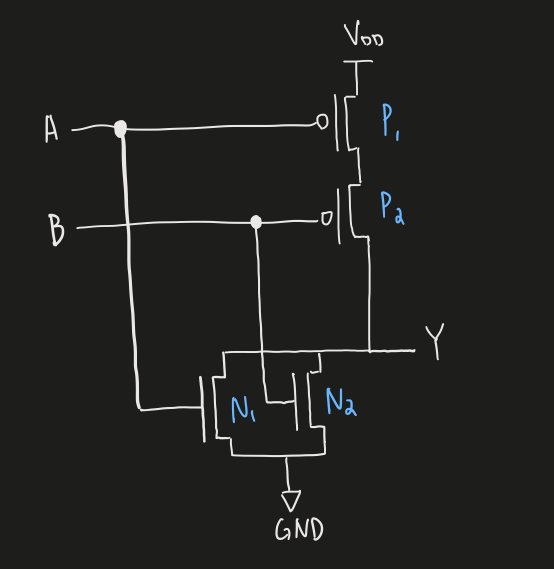 V_DD
A
P₁
B
P₂
Y
N₁
N₂
GND